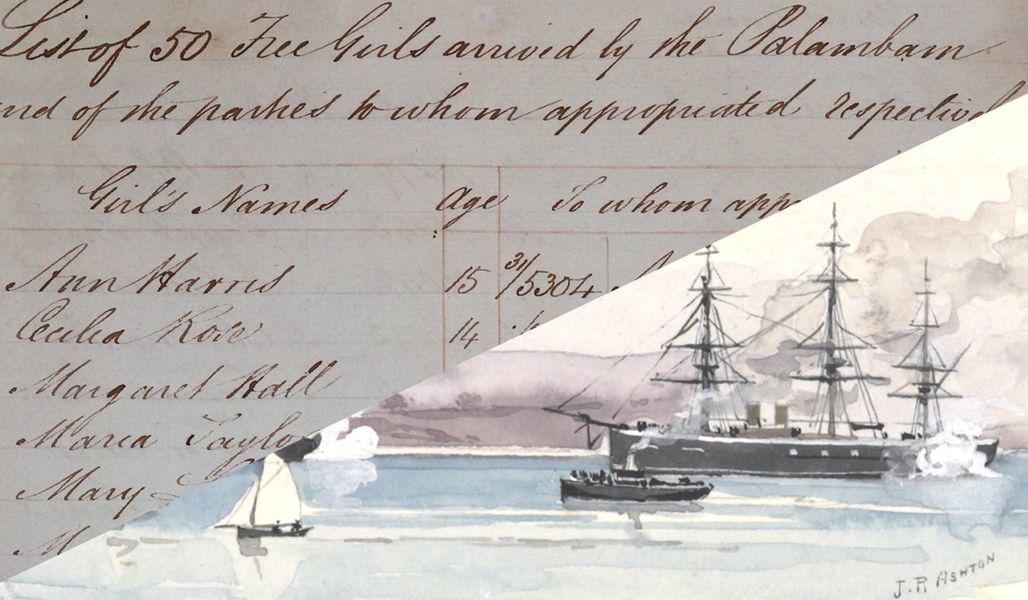 List of 50 Free Girls arrived by the Palambam
and of the parties to whom appropriated respectivel
Girl's Names Age To whom app
Ann Harris 15 31/5304
Cecilia Rose 14
Margaret Hall
Maria Taylo
Mary
M
J. R. ASHTON